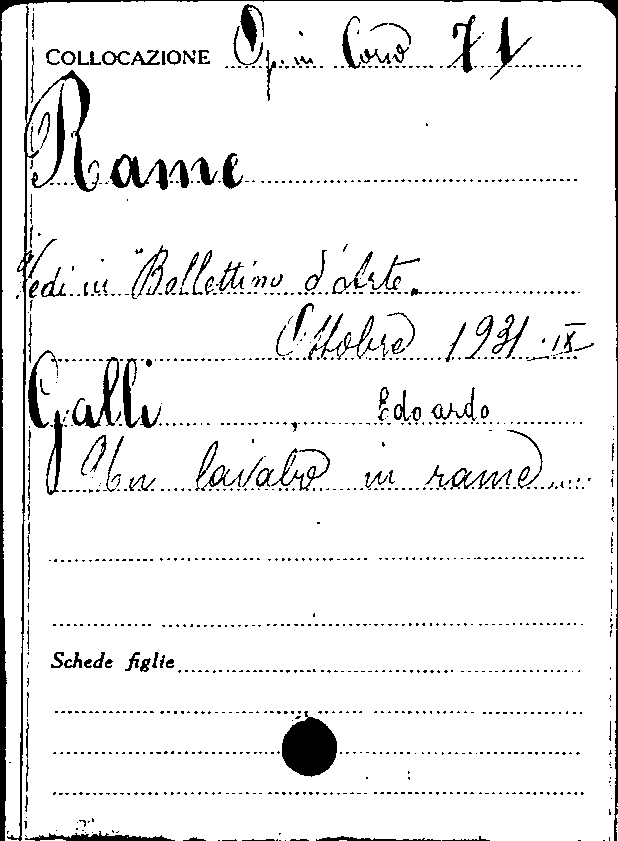 COLLOCAZIONE Op. in Corso 71
Rame
Vedi in "Bollettino d'Arte.
Ottobre 1931 . IX
Galli, Edoardo
Un lavabo in rame.....
Schede figlie